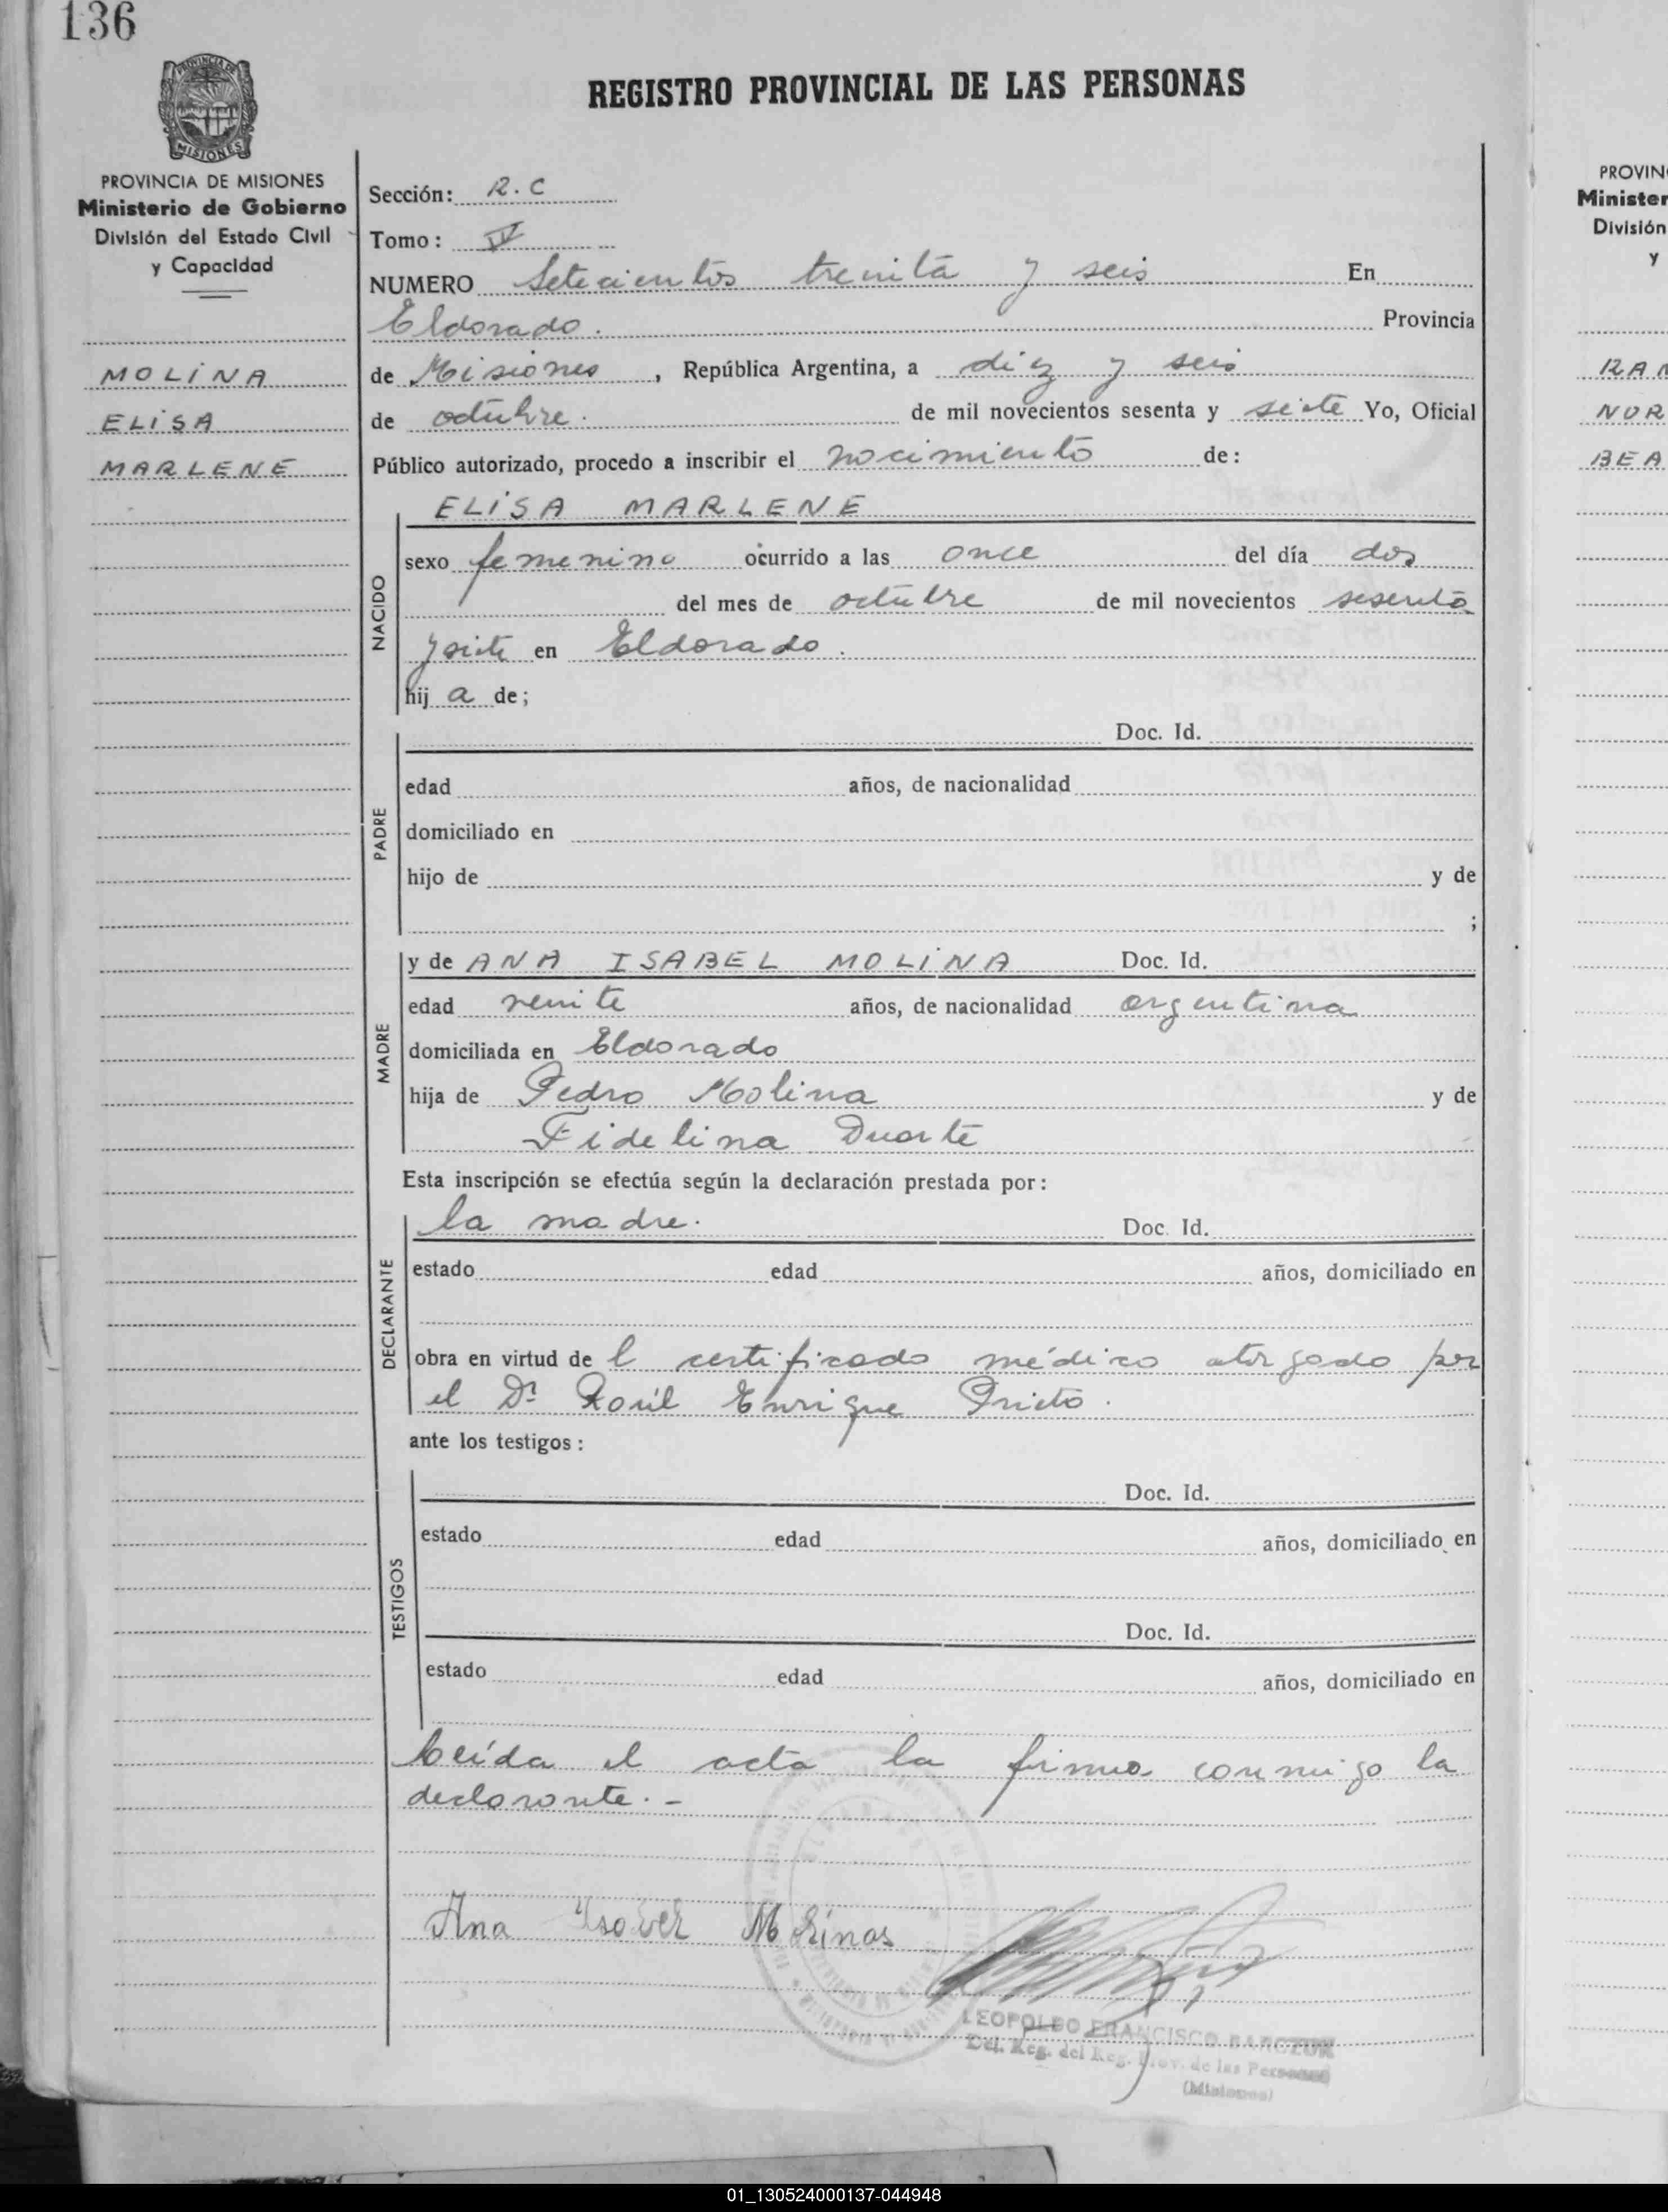 136
REGISTRO PROVINCIAL DE LAS PERSONAS
PROVINCIA DE
MISIONES
PROVINCIA DE MISIONES
Ministerio de Gobierno
División del Estado Civil
y Capacidad
MOLINA
ELISA
MARLENE
Sección: R.C
Tomo: IV
NUMERO Setecientos treinta y seis En
Eldorado. Provincia
de Misiones, República Argentina, a diez y seis
de octubre. de mil novecientos sesenta y siete Yo, Oficial
Público autorizado, procedo a inscribir el nacimiento de:
NACIDO
ELISA MARLENE
sexo femenino ocurrido a las once del día dos
del mes de octubre de mil novecientos sesenta
y siete en Eldorado.
hij a de;
PADRE
Doc. Id.
edad años, de nacionalidad
domiciliado en
hijo de y de
;
MADRE
y de ANA ISABEL MOLINA Doc. Id.
edad veinte años, de nacionalidad argentina
domiciliada en Eldorado
hija de Pedro Molina y de
Fidelina Duarte
Esta inscripción se efectúa según la declaración prestada por:
DECLARANTE
la madre. Doc. Id.
estado edad años, domiciliado en
obra en virtud de l certificado médico otorgado por
el Dr Raúl Enrique Prieto.
ante los testigos:
TESTIGOS
Doc. Id.
estado edad años, domiciliado en
Doc. Id.
estado edad años, domiciliado en
Leída el acta la firma conmigo la
declarante.-
Ana Ysovel Molinas
LEOPOLDO FRANCISCO
Del. Reg. del Reg. Prov. de las Personas
(Misiones)
PROVIN
Minister
División
y
RAM
NOR
BEA
01_130524000137-044948